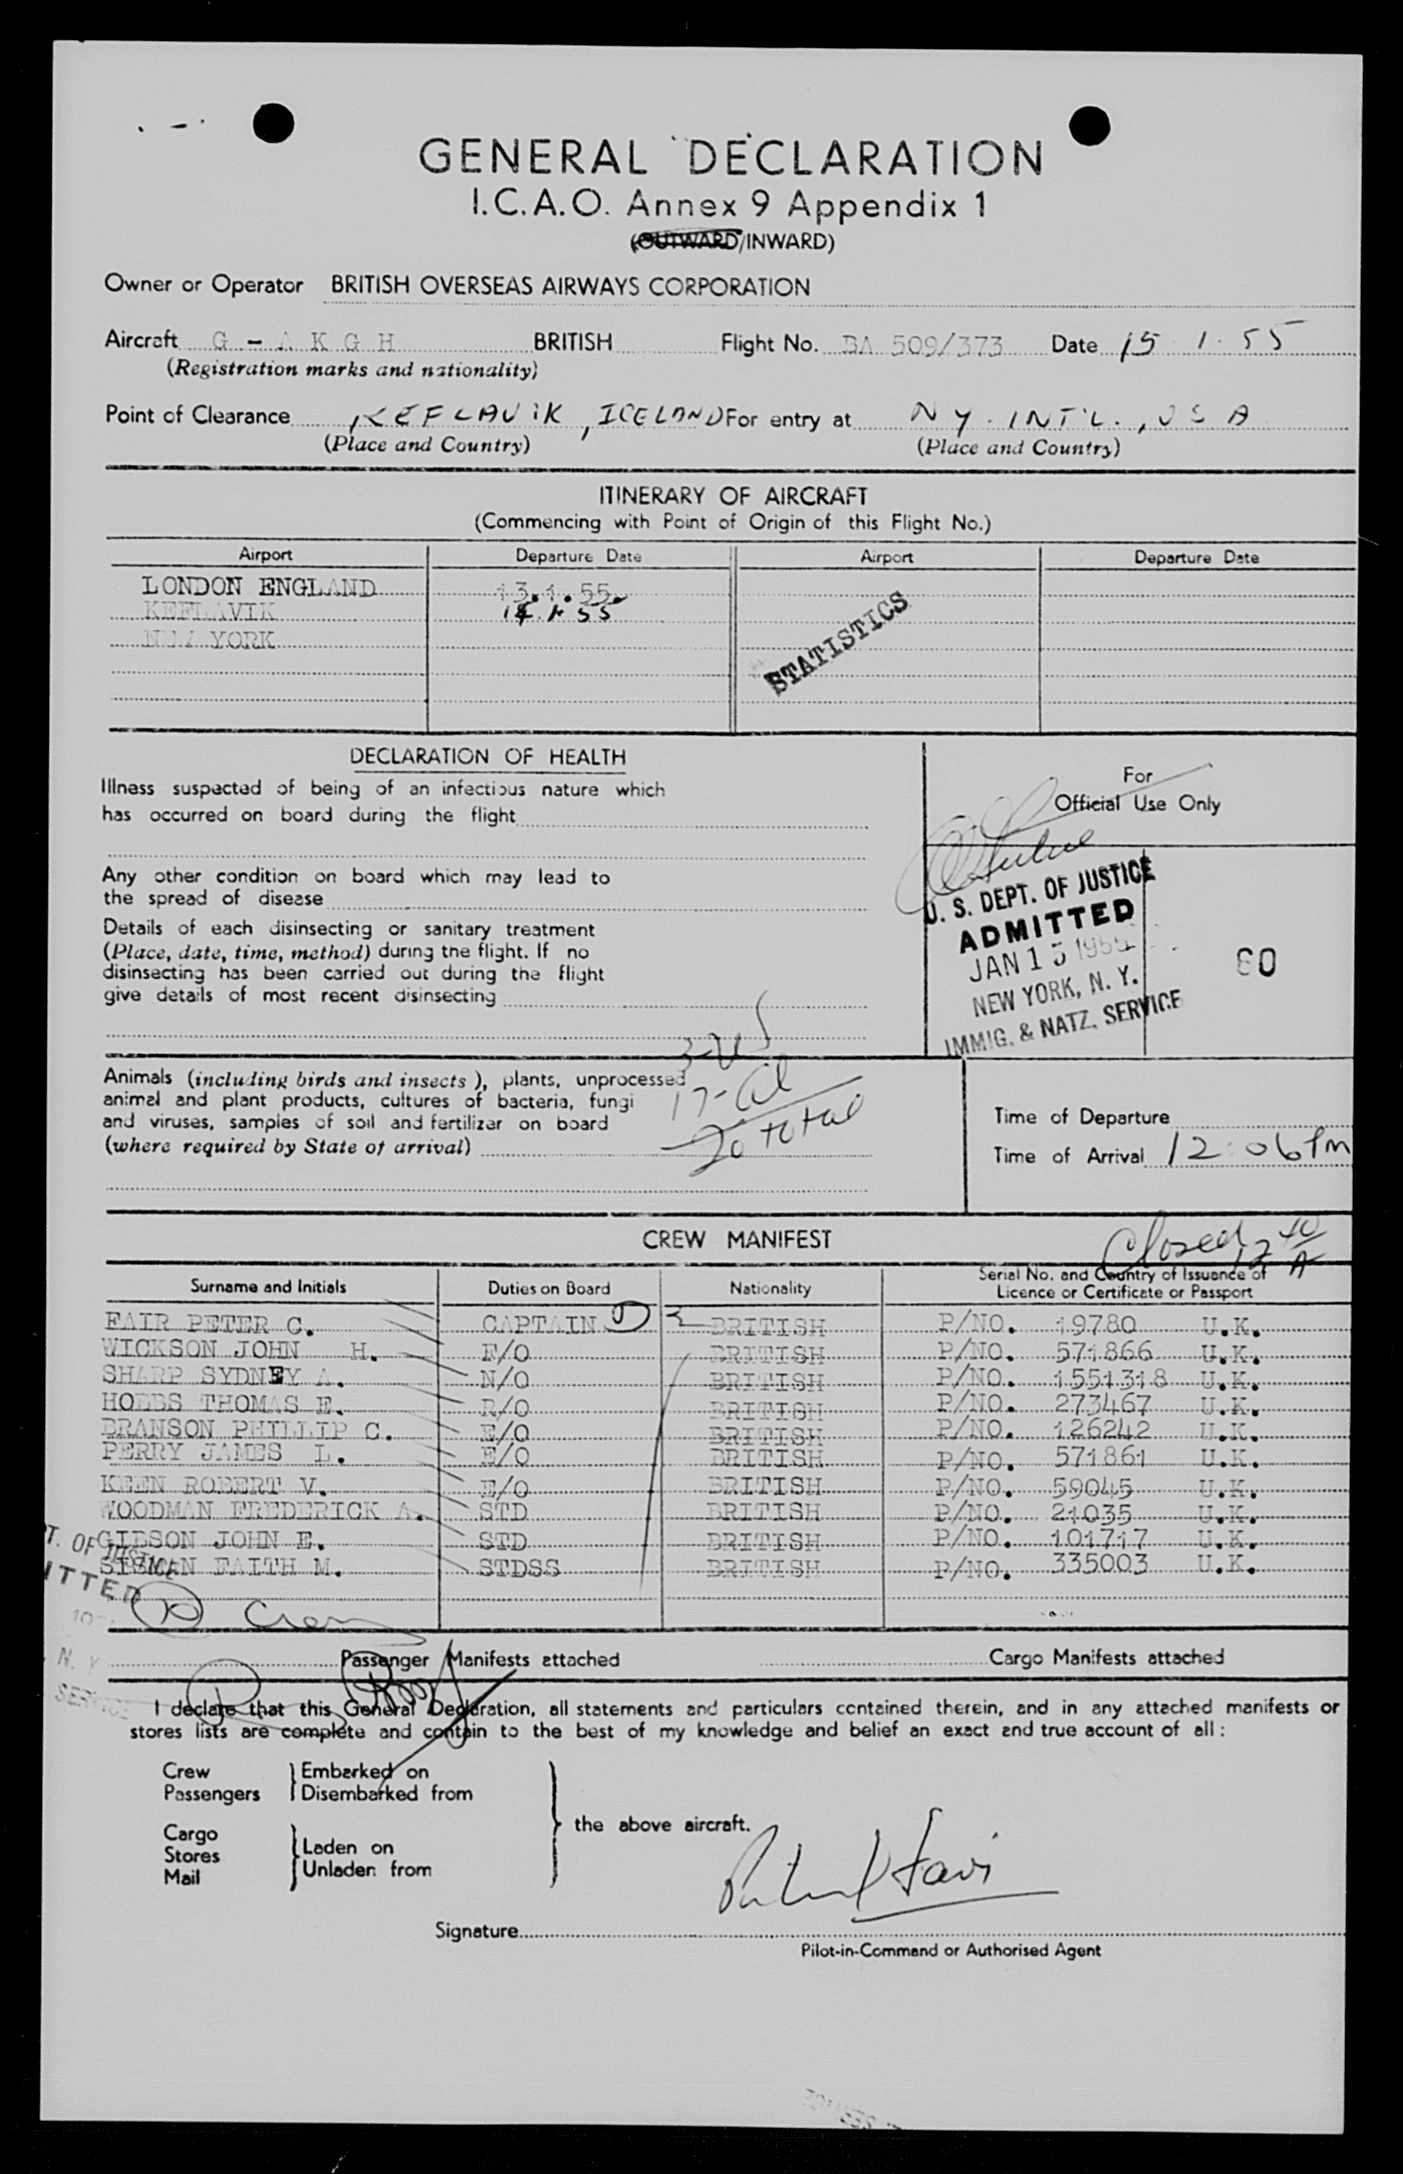 GENERAL DECLARATION
I.C.A.O. Annex 9 Appendix 1
(OUTWARD/INWARD)
Owner or Operator BRITISH OVERSEAS AIRWAYS CORPORATION
Aircraft G - A K G H BRITISH Flight No. BA 509/373 Date 15 . 1 . 55
(Registration marks and nationality)
Point of Clearance KEFLAVIK, ICELAND For entry at N Y . INT'L., USA
(Place and Country) (Place and Country)
ITINERARY OF AIRCRAFT
(Commencing with Point of Origin of this Flight No.)
Airport Departure Date Airport Departure Date
LONDON ENGLAND 13.1.55.
KEFLAVIK 14.1.55
NEW YORK
STATISTICS
DECLARATION OF HEALTH
Illness suspected of being of an infectious nature which
has occurred on board during the flight
Any other condition on board which may lead to
the spread of disease
Details of each disinsecting or sanitary treatment
(Place, date, time, method) during the flight. If no
disinsecting has been carried out during the flight
give details of most recent disinsecting
For
Official Use Only
U. S. DEPT. OF JUSTICE
ADMITTED
JAN 15 1955
NEW YORK, N. Y.
IMMIG. & NATZ. SERVICE
60
Animals (including birds and insects), plants, unprocessed
animal and plant products, cultures of bacteria, fungi
and viruses, samples of soil and fertilizer on board
(where required by State of arrival)
3-US
17-al
20 total
Time of Departure
Time of Arrival 12:06 Pm
CREW MANIFEST
Closed 12 40 A
Surname and Initials Duties on Board Nationality Serial No. and Country of Issuance of
Licence or Certificate or Passport
FAIR PETER C. CAPTAIN BRITISH P/NO. 19780 U.K.
WICKSON JOHN H. F/O BRITISH P/NO. 571866 U.K.
SHARP SYDNEY A. N/O BRITISH P/NO. 1551318 U.K.
HOBBS THOMAS E. R/O BRITISH P/NO. 273467 U.K.
BRANSON PHILLIP C. E/O BRITISH P/NO. 126242 U.K.
PERRY JAMES L. E/O BRITISH P/NO. 571861 U.K.
KEEN ROBERT V. E/O BRITISH P/NO. 59045 U.K.
WOODMAN FREDERICK A. STD BRITISH P/NO. 21035 U.K.
GIBSON JOHN E. STD BRITISH P/NO. 101717 U.K.
SISMAN FAITH M. STDSS BRITISH P/NO. 335003 U.K.
T. OF JUSTICE
ITTED
N. Y
SERVICE
10 Crew
Passenger Manifests attached Cargo Manifests attached
I declare that this General Declaration, all statements and particulars contained therein, and in any attached manifests or
stores lists are complete and contain to the best of my knowledge and belief an exact and true account of all:
Crew Embarked on
Passengers Disembarked from
the above aircraft.
Cargo
Stores Laden on
Mail Unladen from
Signature
Pilot-in-Command or Authorised Agent